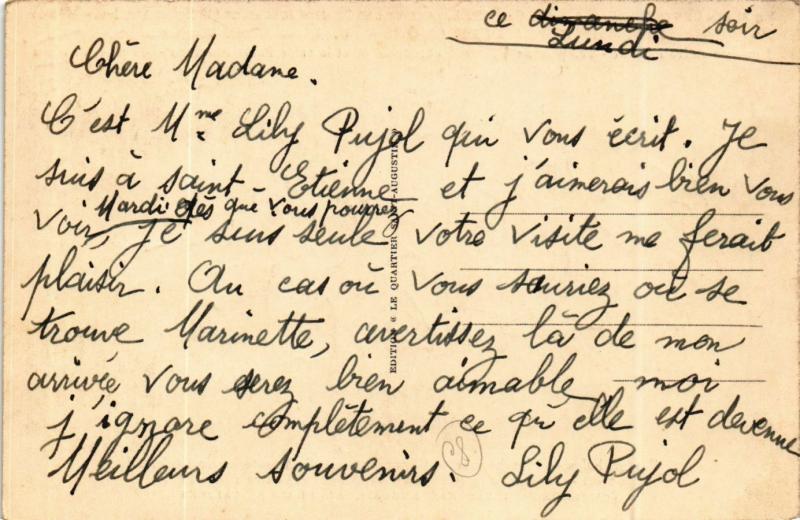 ce dimanche soir
Lundi
Chère Madame.
C'est Mme Lily Pujol qui vous écrit. Je
suis à saint-Etienne et j'aimerais bien vous
Mardi dès que vous pourrez
voir, je suis seule votre visite me ferait
plaisir. Au cas où vous sauriez où se
trouve Marinette, avertissez là de mon
arrivée vous serez bien aimable, moi
j'ignore complètement ce qu'elle est devenue
Meilleurs souvenirs. Lily Pujol
C8
EDITION « LE QUARTIER SAINT-AUGUSTIN